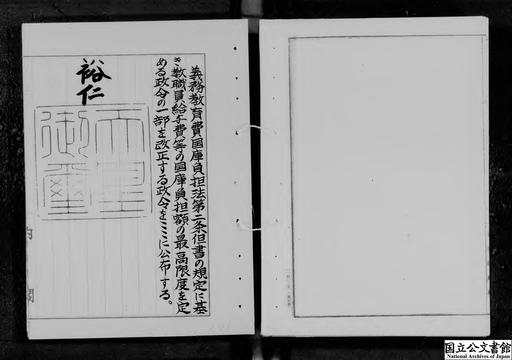 義務教育費国庫負担法第二条但書の規定に基
き教職員給与費等の国庫負担額の最高限度を定
める政令の一部を改正する政令をここに公布する。
裕仁
天皇
御璽
国立公文書館
National Archives of Japan